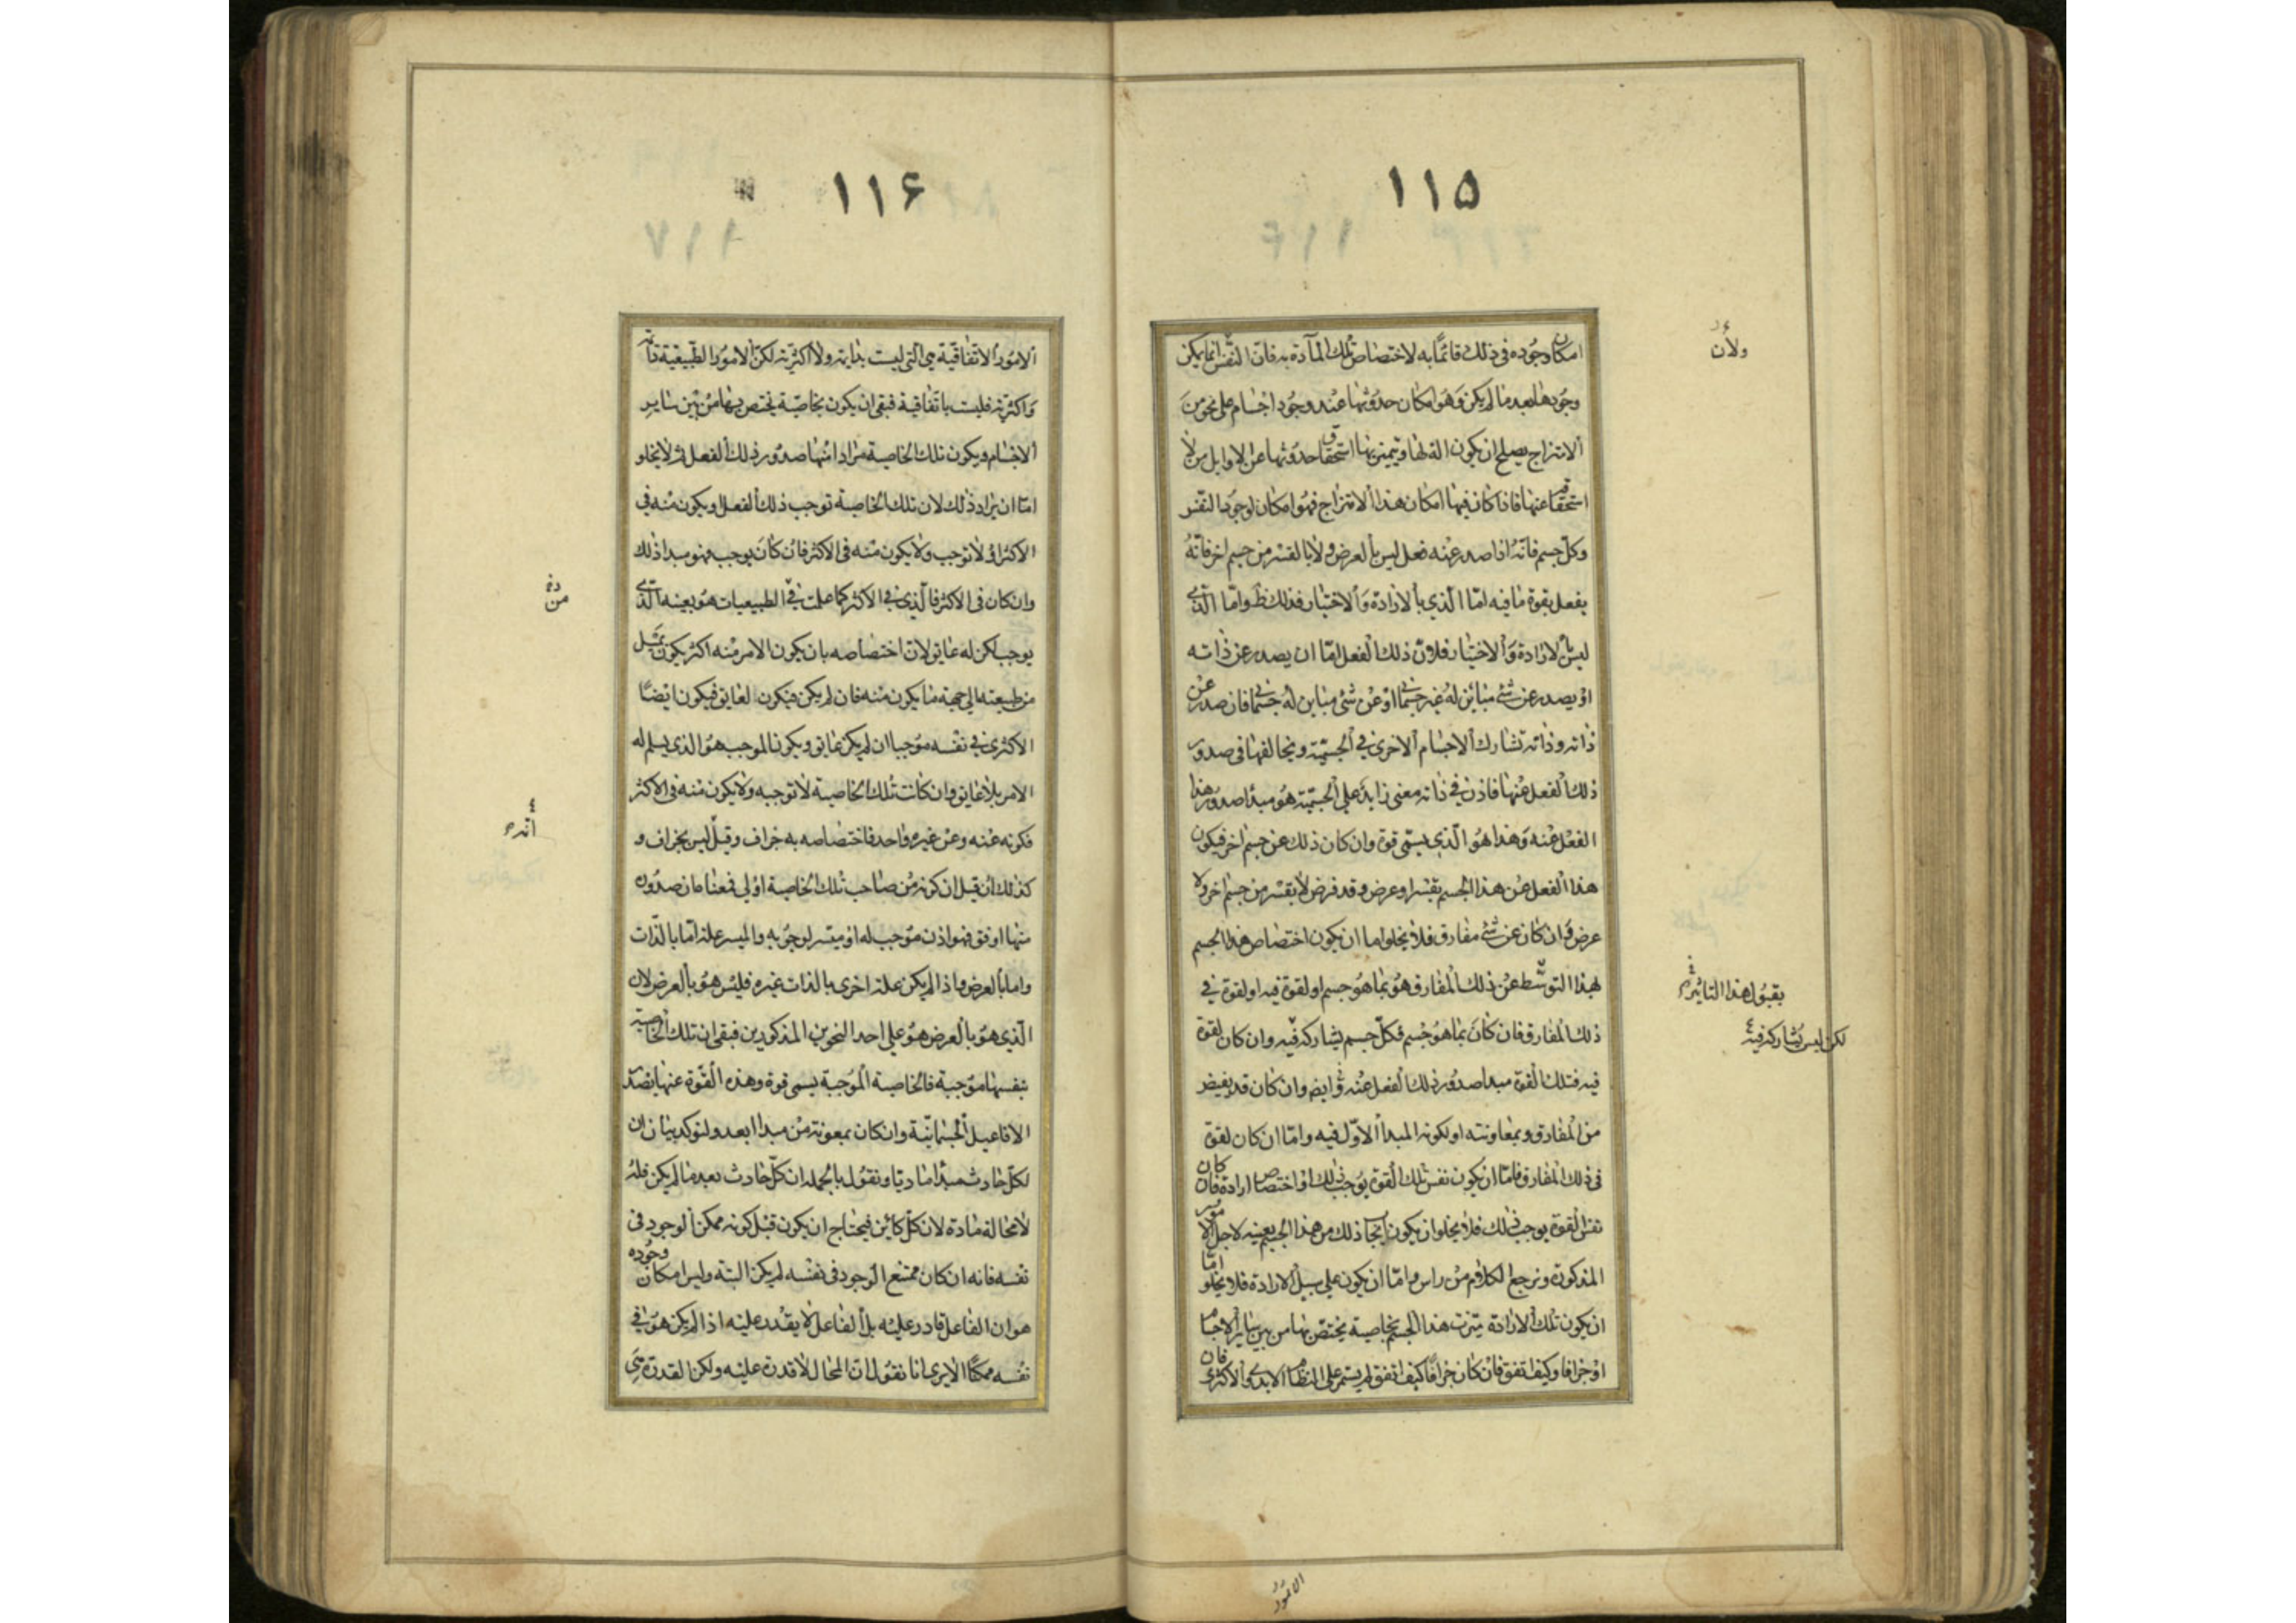 ١١٥
امكان وجوده فى ذلك قائمًا به لاختصاص تلك المآدة به فانّ النفس انما يمكن
وجودها بعد ما لم يكن وَهُو امكان حدوثها عند وجود اجسام على نحو منَ
الامتزاج يصلح ان يكون الة لها ويتميز بها استحقاق حدوثها من الاوايل من لا
استحقاق عنها فاذا كان فيها امكان هذا الامتزاج فهو امكان لوجود النفس
وكلّ جسم فانّه اذا صدر عنه فعل ليس بالعرض ولا بالقسر من جسم اخر فانّهُ
يفعل بقوة ما فيه امّا الّذي بالارادة وَالاختيار فذلك ظ وامّا الّذى
ليس بالارادة وَالاختيار فلانّ ذلك الفعل امّا ان يصدر عن ذاته
او يصدر عن شئ مباين لهُ غير جسمانى او عن شئ مباين لهُ جسمانى فان صدر عن
ذاته وذاته تشارك الاجسام الاخرى في الجسميّة ويخالفها فى صدور
ذلك الفعل عنها فاذن في ذاته معنى زايد على الجسميّة هو مبدأ صدور هذا
الفعل عنه وَهذا هُو الّذي يسمّى قوة وان كان ذلك عن جسم اخر فيكون
هذا الفعل عن هذا الجسم بقسر او عرض وقد فرض لا بقسر من جسم اخر ولا
عرض وَان كان عن شئ مفارق فلا يخلو اما ان يكون اختصاص هذا الجسم
بهذا التوسّط عن ذلك المفارق هُو بما هُو جسم او لقوة فيه او لقوة في
ذلك المفارق فان كانَ بما هو جسم فكلّ جسم يشاركه فيه وان كان لقوة
فيه فتلك القوة مبدا صدور ذلك الفعل عنه وايض وان كان قد يفيض
من المفارق وبمعاونته او لكونه المبدأ الاوّل فيه وامّا ان كان لقوة
فى ذلك المفارق فامّا ان يكون نفس تلك القوة يوجب ذلك او اختصاص ارادة فان كان
نفس القوة يوجب ذلك فلا يخلو ان يكون ايجاب ذلك من هذا الجسم بعينه لاجل الامور
المذكورة ونرجع الكلام من راس وامّا ان يكون على سبيل الارادة فلا يخلو امّا
ان يكون تلك الارادة ميّزت هذا الجسم بخاصية يختصّ بها من بين سائر الاجسام
او جزافا وكيف اتفق فان كان جزافًا كيف اتفق لم يستمر على النظام الابدى والاكثرى فان
ولأن
بقبول هذا التاثير
لكن ليس يشاركه فيه
الامور
١١۶
الامور الاتفاقيّة هى الّتي ليست بدايمة ولا اكثريّة لكنّ الامور الطبيعيّة دائمة
وَاكثريّة فليست باتفاقية فبقى ان يكون بخاصيّة يختص بها من بين ساير
الاجسام ويكون تلك الخاصية مراد امنها صدور ذلك الفعل ثم لا يخلو
امّا ان يراد ذلك لان تلك الخاصية توجب ذلك الفعل او يكون منه في
الاكثر اوْ لا توجب ولا يكون منه فى الاكثر فان كانَ يوجب فهو مبدا ذلك
وان كان فى الاكثر فالّذي في الاكثر كما علمت في الطبيعيات هو بعينه الّذى
يوجب لكن له عايق لانّ اختصاصه بان يكون الامر منه اكثر يكون بمَيل
من طبيعته الى جهة ما يكون منه فان لم يكن فيكون لعايق فيكون ايضًا
الاكثرى في نفسه موجبا ان لم يكن عايق ويكون الموجب هُو الذي يسلم له
الامر بلا عايق وان كانت تلك الخاصية لا توجبه ولا يكون منه فى الاكثر
فكونه عنه وعن غيره واحد فاختصاصه به جزاف وقيل ليس بجزاف و
كذلك ان قيل ان كونه من صاحب تلك الخاصية اولى فمعناه ان صدوره
منها اوفق فهو اذن موجب له او ميسّر لوجوبه والميسر علة امّا بالذّات
واما بالعرض واذا لم يكن علة اخرى بالذات غيره فليس هو بالعرض لان
الّذي هو بالعرض هو على احد النحوين المذكورين فبقى ان تلك الخاصية
بنفسها موجبة فالخاصية الموَجبة يسمى قوة وهذه القوّة عنها يصدر
الافاعيل الجسمانيّة وان كان بمعونة من مبدا ابعد ولنوكد بيان ان
لكلّ حادث مبدأ ماديّا ونقول بالجمله ان كلّ حادث بعد ما لم يكن فلهُ
لا محالة مادة لان كلّ كائن فيحتاج ان يكون قبل كونه ممكن الوجود فى
نفسه فانه ان كان ممتنع الوجود فى نفسه لم يكن البتة وليس امكان وجوده
هو ان الفاعل قادر عليه بل الفاعل لا يقدر عليه اذا لم يكن هو في
نفسه ممكنًا الا يرى انا نقول انّ المحال لا قدرة عليه ولكن القدرة هى
من
انه